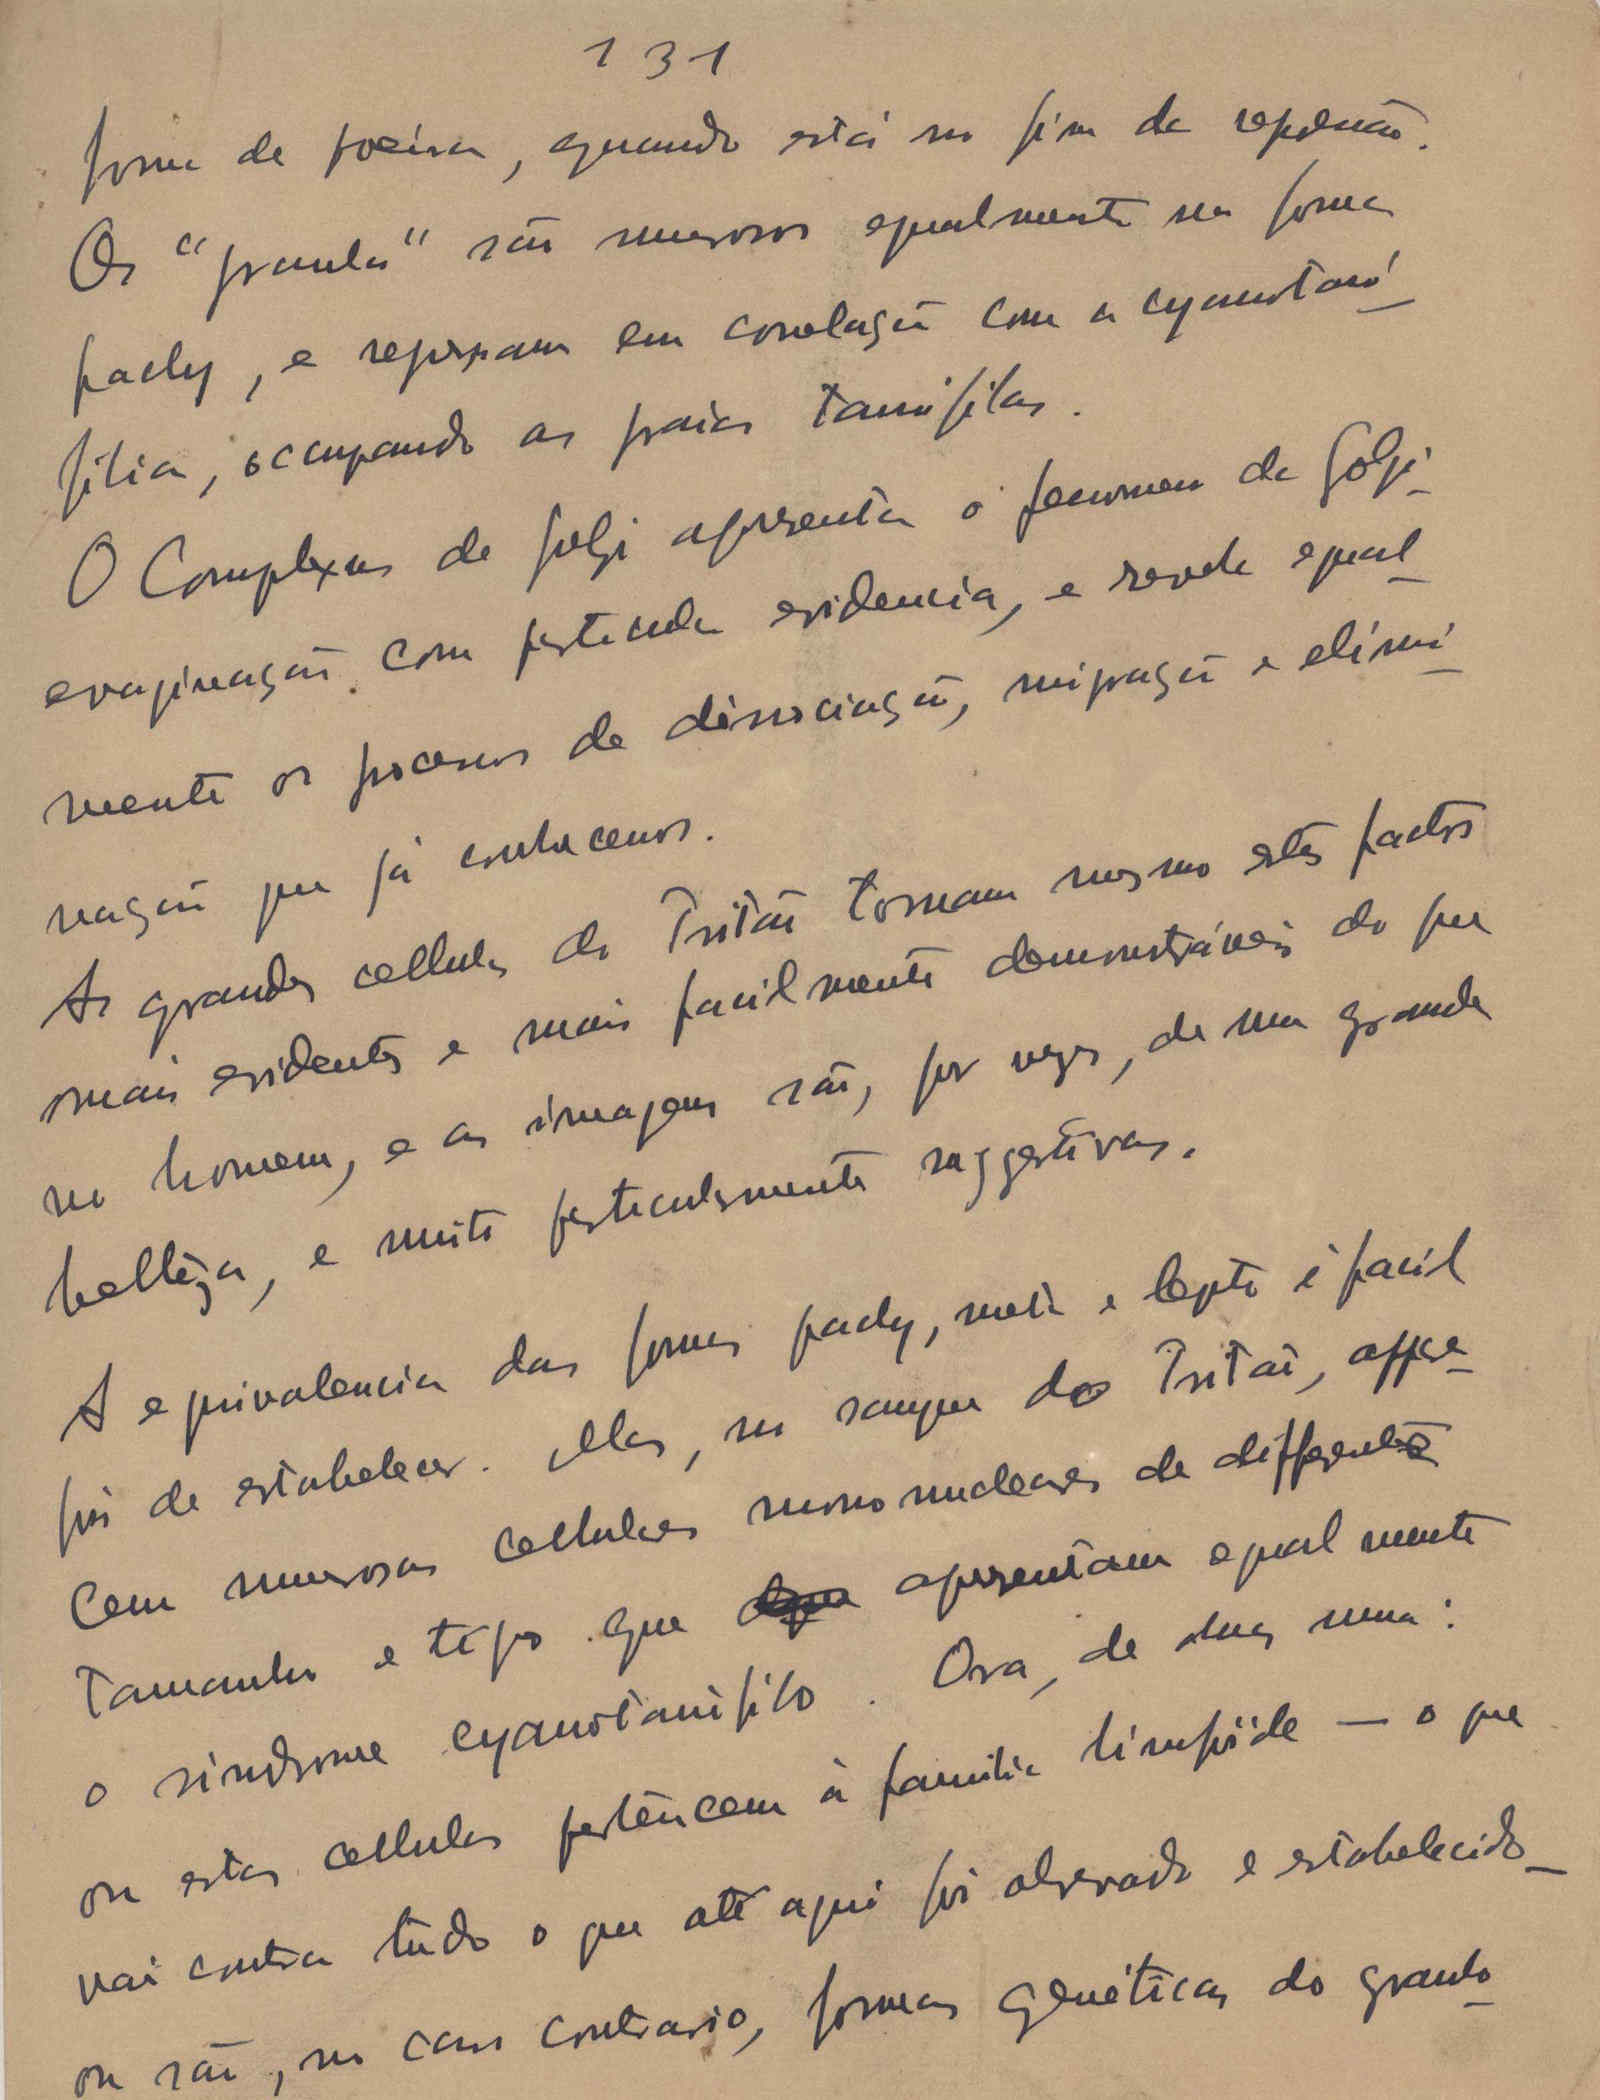 131
forma de poeira, quando está no fim da repleção.
Os "granula" são numerosos egualmente na forma
pachy, e repousam em correlação com a cyanotani-
filia, occupando as praias tanifilas.
O Complexus de Golgi apresenta o fenomeno de Golgi-
evaginação com particular evidencia, e revela egual-
mente os processos de dissociação, migração e elimi-
nação que já conhecemos.
As grandes cellulas do Tritão tornam mesmo estes factos
mais evidentes e mais facilmente demonstráveis do que
no homem, e as imagens são, por vezes, de uma grande
belleza, e muito particularmente suggestivas.
A equivalencia das formas pachy, meta e lepto é facil
pois de estabelecer. Mas, no sangue do Tritão, appare-
cem numerosas cellulas mononucleares de differentes
tamanhos e tipo que apresentam egualmente
o sindrome cyanotanifilo. Ora, de duas uma:
ou estas cellulas pertencem à familia limfóide — o que
vai contra tudo o que até aqui foi observado e estabelecido —
ou são, no caso contrario, formas genéticas do granulo-